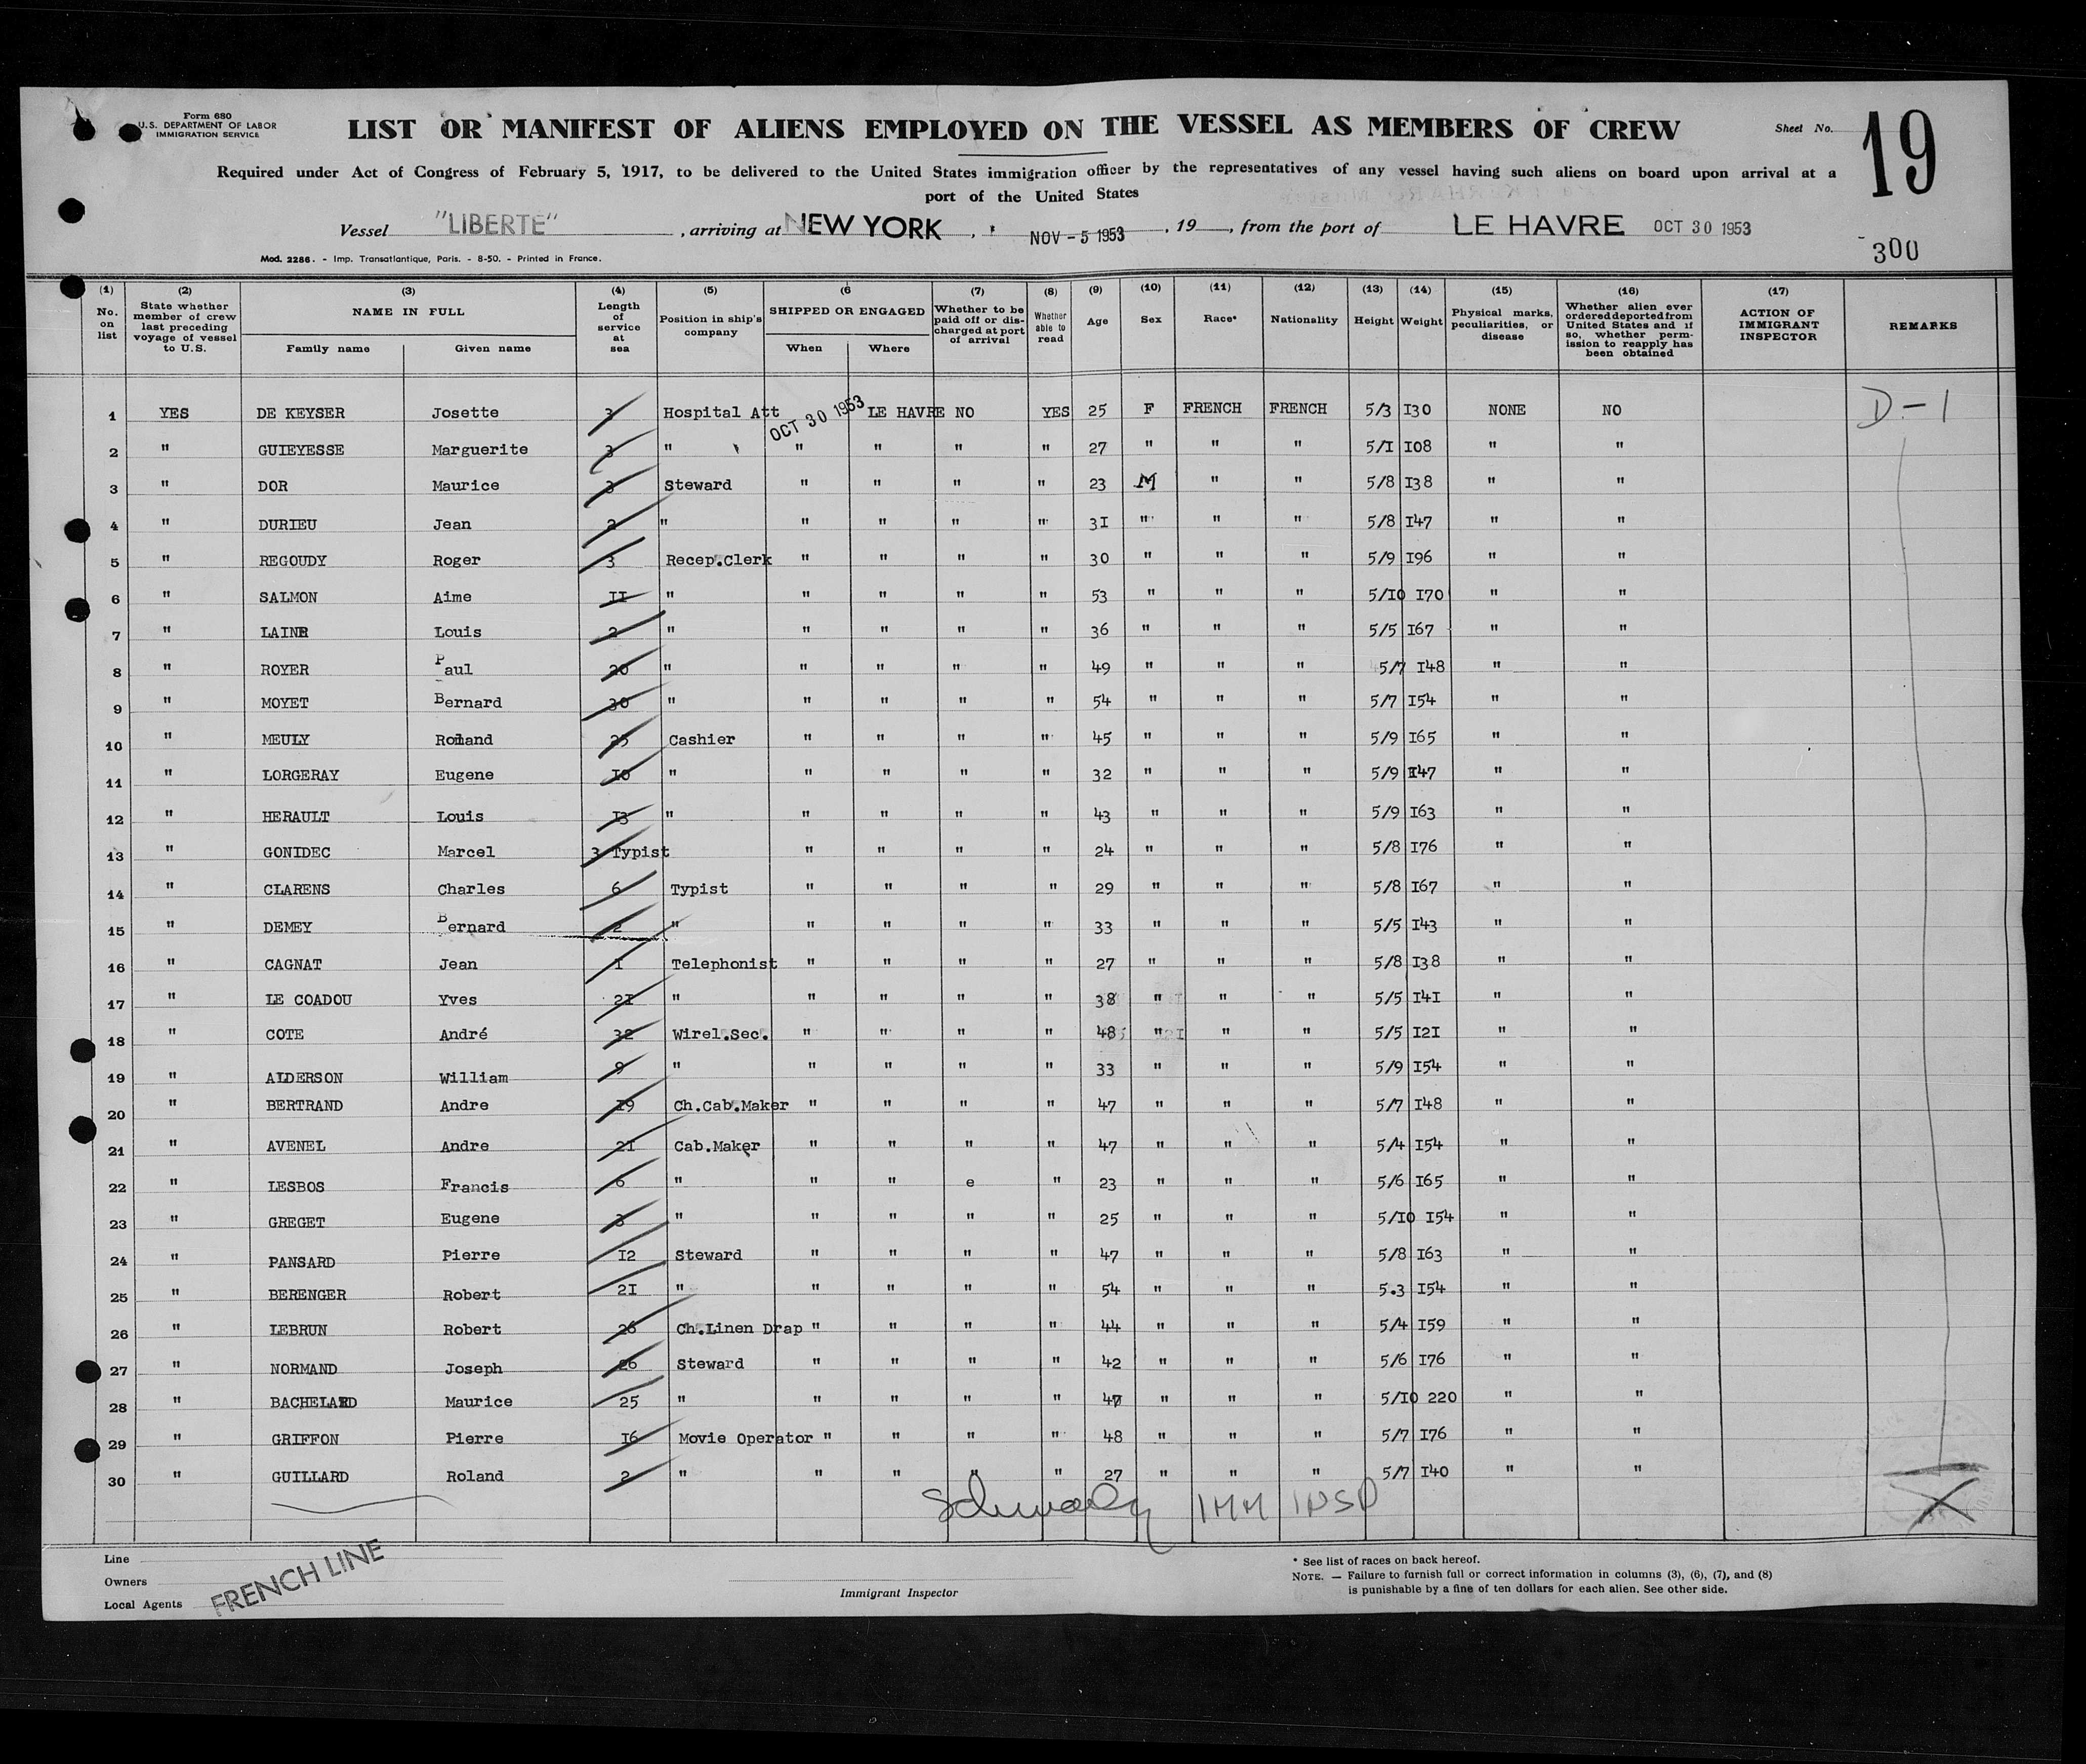 Form 680
U.S. DEPARTMENT OF LABOR
IMMIGRATION SERVICE
LIST OR MANIFEST OF ALIENS EMPLOYED ON THE VESSEL AS MEMBERS OF CREW
Sheet No. 19
Required under Act of Congress of February 5, 1917, to be delivered to the United States immigration officer by the representatives of any vessel having such aliens on board upon arrival at a
port of the United States
Vessel "LIBERTE", arriving at NEW YORK, NOV - 5 1953, 19, from the port of LE HAVRE OCT 30 1953
300
Mod. 2286. - Imp. Transatlantique, Paris. - 8-50. - Printed in France.
(1) (2) (3) (4) (5) (6 (7) (8) (9) (10) (11) (12) (13) (14) (15) (16) (17)
No. on list
State whether member of crew last preceding voyage of vessel to U.S.
NAME IN FULL
Family name Given name
Length of service at sea
Position in ship's company
SHIPPED OR ENGAGED
When Where
Whether to be paid off or discharged at port of arrival
Whether able to read
Age
Sex
Race*
Nationality
Height
Weight
Physical marks, peculiarities, or disease
Whether alien ever ordered deported from United States and if so, whether permission to reapply has been obtained
ACTION OF IMMIGRANT INSPECTOR
REMARKS
1 YES DE KEYSER Josette 3 Hospital Att OCT 30 1953 LE HAVRE NO YES 25 F FRENCH FRENCH 5/3 I30 NONE NO D-1
2 " GUIEYESSE Marguerite 3 " " " " " 27 " " " 5/I I08 " "
3 " DOR Maurice 3 Steward " " " " 23 M " " 5/8 I38 " "
4 " DURIEU Jean 2 " " " " " 3I " " " 5/8 I47 " "
5 " REGOUDY Roger 3 Recep.Clerk " " " " 30 " " " 5/9 I96 " "
6 " SALMON Aime II " " " " " 53 " " " 5/I0 I70 " "
7 " LAINE Louis 2 " " " " " 36 " " " 5/5 I67 " "
8 " ROYER Paul 20 " " " " " 49 " " " 5/7 I48 " "
9 " MOYET Bernard 30 " " " " " 54 " " " 5/7 I54 " "
10 " MEULY Romand 25 Cashier " " " " 45 " " " 5/9 I65 " "
11 " LORGERAY Eugene I0 " " " " " 32 " " " 5/9 I47 " "
12 " HERAULT Louis I3 " " " " " 43 " " " 5/9 I63 " "
13 " GONIDEC Marcel 3 Typist " " " " 24 " " " 5/8 I76 " "
14 " CLARENS Charles 6 Typist " " " " 29 " " " 5/8 I67 " "
15 " DEMEY Bernard 2 " " " " " 33 " " " 5/5 I43 " "
16 " CAGNAT Jean I Telephonist " " " " 27 " " " 5/8 I38 " "
17 " LE COADOU Yves 2I " " " " " 38 " " " 5/5 I4I " "
18 " COTE André 32 Wirel.Sec. " " " " 48 " " " 5/5 I2I " "
19 " ALDERSON William 9 " " " " " 33 " " " 5/9 I54 " "
20 " BERTRAND Andre I9 Ch.Cab.Maker " " " " 47 " " " 5/7 I48 " "
21 " AVENEL Andre 2I Cab.Maker " " " " 47 " " " 5/4 I54 " "
22 " LESBOS Francis 6 " " " e " 23 " " " 5/6 I65 " "
23 " GREGET Eugene 3 " " " " " 25 " " " 5/I0 I54 " "
24 " PANSARD Pierre I2 Steward " " " " 47 " " " 5/8 I63 " "
25 " BERENGER Robert 2I " " " " " 54 " " " 5.3 I54 " "
26 " LEBRUN Robert 26 Ch.Linen Drap " " " " 44 " " " 5/4 I59 " "
27 " NORMAND Joseph 26 Steward " " " " 42 " " " 5/6 I76 " "
28 " BACHELARD Maurice 25 " " " " " 47 " " " 5/I0 220 " "
29 " GRIFFON Pierre I6 Movie Operator " " " " 48 " " " 5/7 I76 " "
30 " GUILLARD Roland 2 " " " " " 27 " " " 5/7 I40 " "
IMM INSP
Line
Owners
Local Agents
FRENCH LINE
Immigrant Inspector
* See list of races on back hereof.
NOTE. — Failure to furnish full or correct information in columns (3), (6), (7), and (8)
is punishable by a fine of ten dollars for each alien. See other side.